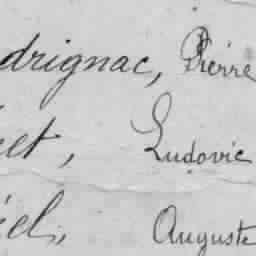 drignac, Pierre
et, Ludovic
el, Auguste